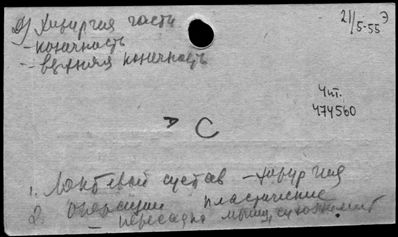 Хирургия части
- конечность
-- верхняя конечность
21/5-55 Э
Чит.
474560
А С
1. Локтевой сустав - хирургия
2. Операции пластические
- пересадка мышц, сухожилий